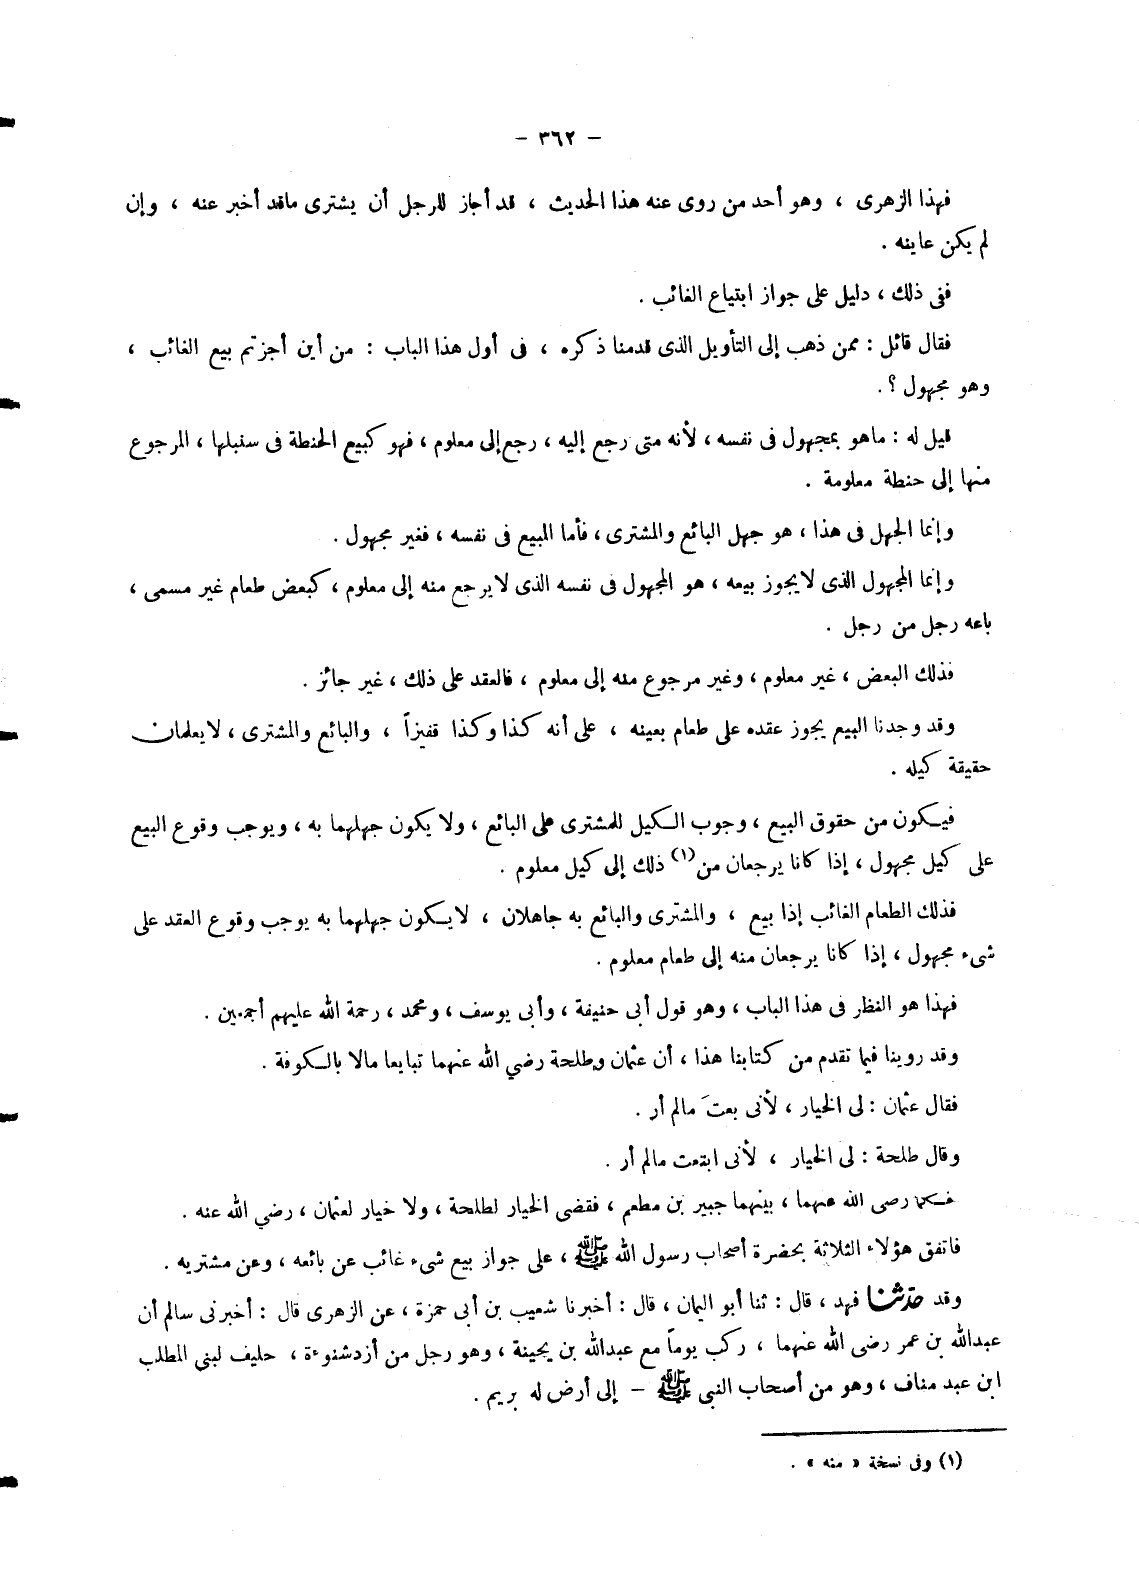 – ٣٦٢ –
فهذا الزهرى ، وهو أحد من روى عنه هذا الحديث ، قد أجاز للرجل أن يشترى ماقد أخبر عنه ، وإن
لم يكن عاينه .
ففى ذلك ، دليل على جواز ابتياع الغائب .
فقال قائل : ممن ذهب إلى التأويل الذى قدمنا ذكره ، فى أول هذا الباب : من أين أجزتم بيع الغائب ،
وهو مجهول ؟ .
قيل له : ماهو بمجهول فى نفسه ، لأنه متى رجع إليه ، رجع إلى معلوم ، فهو كبيع الحنطة فى سنبلها ، المرجوع
منها إلى حنطة معلومة .
وإنما الجهل فى هذا ، هو جهل البائع والمشترى ، فأما المبيع فى نفسه ، فغير مجهول .
وإنما المجهول الذى لايجوز بيعه ، هو المجهول فى نفسه الذى لايرجع منه إلى معلوم ، كبعض طعام غير مسمى ،
باعه رجل من رجل .
فذلك البعض ، غير معلوم ، وغير مرجوع منه إلى معلوم ، فالعقد على ذلك ، غير جائز .
وقد وجدنا البيع يجوز عقده على طعام بعينه ، على أنه كذا وكذا قفيزاً ، والبائع والمشترى ، لايعلمان
حقيقة كيله .
فيكون من حقوق البيع ، وجوب الكيل للمشترى على البائع ، ولا يكون جهلهما به ، ويوجب وقوع البيع
على كيل مجهول ، إذا كانا يرجعان من(١) ذلك إلى كيل معلوم .
فذلك الطعام الغائب إذا بيع ، والمشترى والبائع به جاهلان ، لايكون جهلهما به يوجب وقوع العقد على
شىء مجهول ، إذا كانا يرجعان منه إلى طعام معلوم .
فهذا هو النظر فى هذا الباب ، وهو قول أبى حنيفة ، وأبى يوسف ، ومحمد ، رحمة الله عليهم أجمعين .
وقد روينا فيما تقدم من كتابنا هذا ، أن عثمان وطلحة رضي الله عنهما تبايعا مالا بالكوفة .
فقال عثمان : لى الخيار ، لأنى بعتَ مالم أر .
وقال طلحة : لى الخيار ، لأنى ابتعت مالم أر .
فحكما رضى الله عنهما ، بينهما جبير بن مطعم ، فقضى الخيار لطلحة ، ولا خيار لعثمان ، رضي الله عنه .
فاتفق هؤلاء الثلاثة بحضرة أصحاب رسول الله ﷺ ، على جواز بيع شىء غائب عن بائعه ، وعن مشتريه .
وقد حدثنا فهد ، قال : ثنا أبو اليمان ، قال : أخبرنا شعيب بن أبى حمزة ، عن الزهرى قال : أخبرنى سالم أن
عبدالله بن عمر رضى الله عنهما ، ركب يوماً مع عبدالله بن بحينة ، وهو رجل من أزدشنوءة ، حليف لبنى المطلب
ابن عبد مناف ، وهو من أصحاب النبى ﷺ – إلى أرض له بريم .
(١) وفى نسخة « منه » .